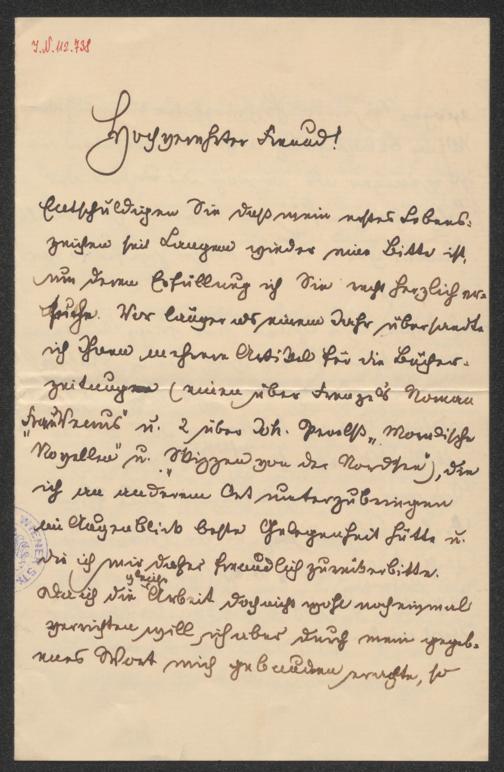 I.N. 112.738
Hochverehrter Freund!
Entschuldigen Sie daß mein erstes Lebens-
zeichen seit Langem wieder eine Bitte ist,
um deren Erfüllung ich Sie recht herzlich er-
suche. Vor länger als einem Jahr übersandte
ich Ihnen mehrere Artikel für die Bücher-
zeitung (einen über Frenzel's Roman
"Frau Venus" u. 2 über Joh. "Nordische
Novellen" u. "Skizzen von der Nordsee"), die
ich an anderem Ort unterzubringen
im Augenblick beste Gelegenheit hätte u.
die ich mir daher freundlich zurückerbitte.
Da ich die gleiche Arbeit doch nicht wohl noch einmal
verrichten will, ich aber durch mein gegeb-
enes Wort mich gebunden erachte, so
WIENER